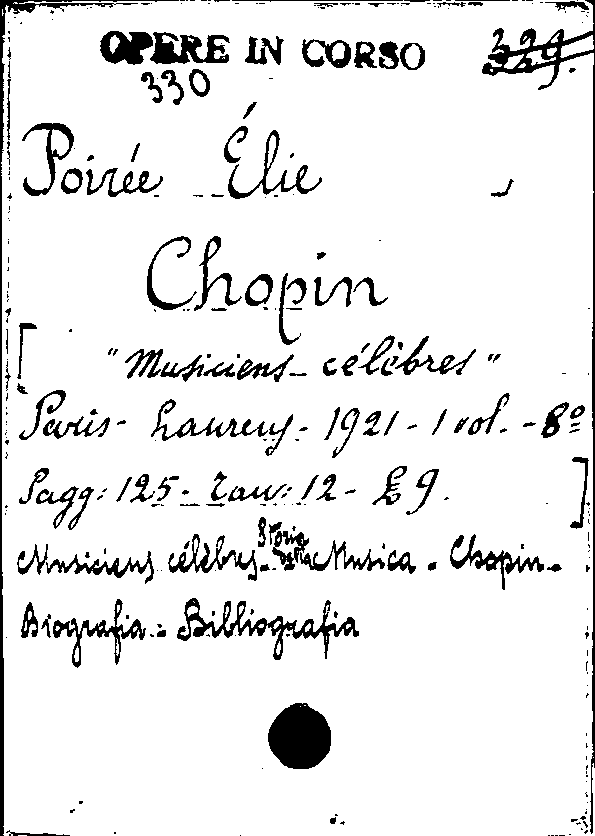 OPERE IN CORSO 329.
330
Poirée Élie
Chopin
[ "Musiciens célèbres"
Paris - Laurens - 1921 - 1 vol. - 8º
Pagg: 125 - Tav: 12 - £ 9. ]
Musiciens célèbres - Storia della Musica - Chopin -
Biografia - Bibliografia